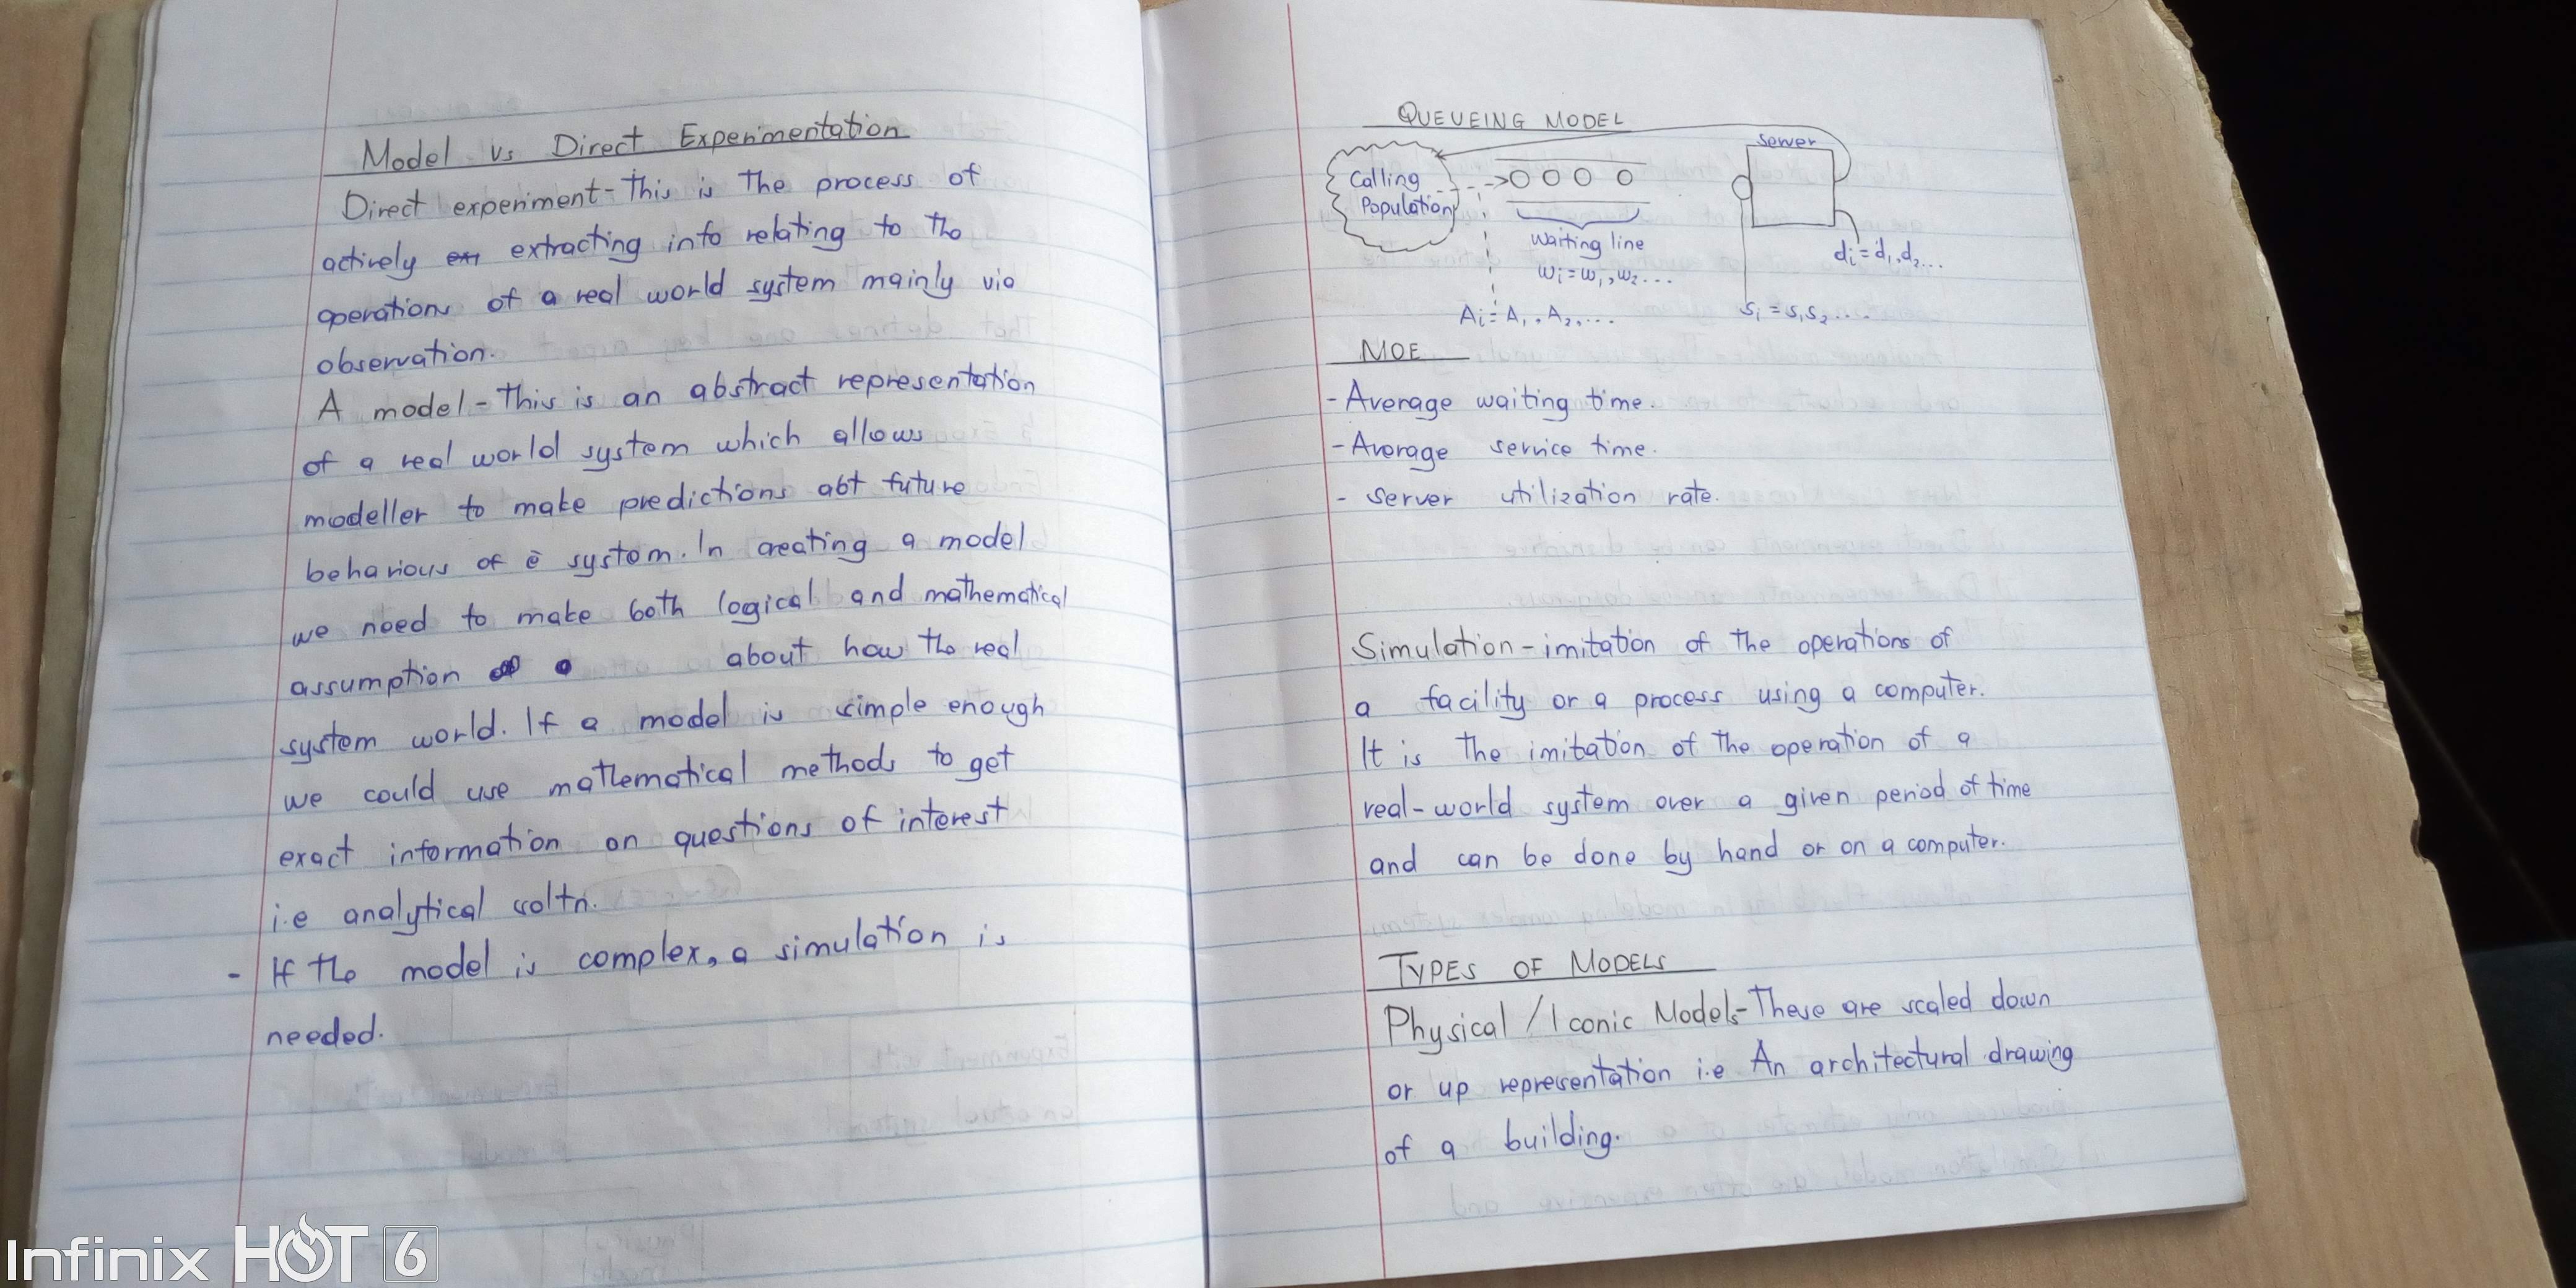 Model vs Direct Experimentation
Direct experiment - This is the process of
actively extracting info relating to the
operations of a real world system mainly via
observation.
A model - This is an abstract representation
of a real world system which allows
modeller to make predictions abt future
behavious of ē system. In creating a model
we need to make both logical and mathematical
assumption about how the real
system world. If a model is simple enough
we could use mathematical methods to get
exact information on questions of interest
i.e analytical soltn.
- If the model is complex, a simulation is
needed.
QUEUEING MODEL
Server
Calling
Population
Waiting line
wi = w1, w2 ...
di = d1, d2 ...
Ai = A1, A2, ...
Si = s1 s2 ...
MOE
- Average waiting time.
- Average service time.
- server utilization rate.
Simulation - imitation of the operations of
a facility or a process using a computer.
It is the imitation of the operation of a
real-world system over a given period of time
and can be done by hand or on a computer.
TYPES OF MODELS
Physical / Iconic Models - These are scaled down
or up representation i.e An architectural drawing
of a building.
Infinix HOT 6